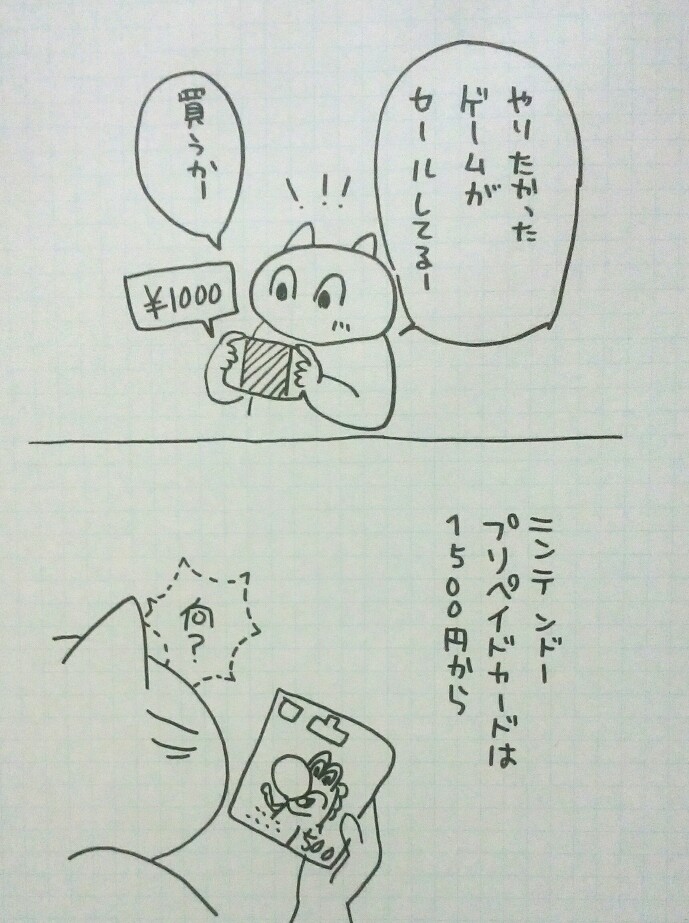 やりたかった
ゲームが
セールしてるー
！！！
買うかー
¥1000
ミンテンドー
プリペイドカードは
1500円から
何？
1500